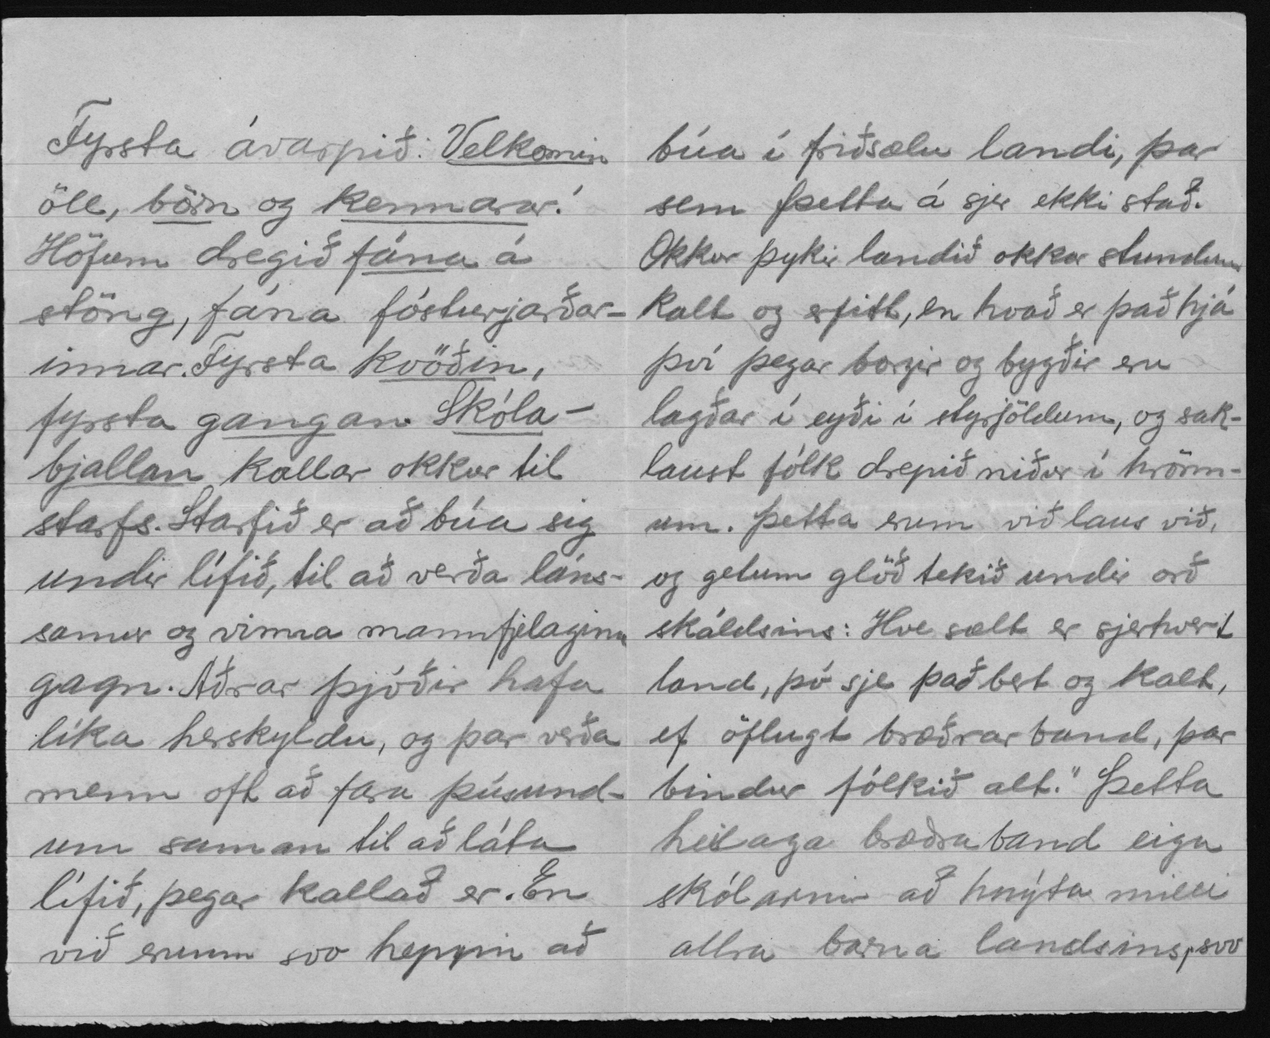 Fyrsta ávarpið: Velkomin
öll, börn og kennarar!
Höfum dregið fána á
stöng, fána fósturjarðar-
innar. Fyrsta kvöðin,
fyrsta gangan. Skóla-
bjallan kallar okkur til
starfs. Starfið er að búa sig
undir lífið, til að verða láns-
samur og vinna mannfjelaginu
gagn. Aðrar þjóðir hafa
líka herskyldu, og þar verða
menn oft að fara þúsund-
um saman til að láta
lífið, þegar kallað er. En
við erum svo heppin að
búa í friðsælu landi, þar
sem þetta á sjer ekki stað.
Okkur þykir landið okkar stundum
kalt og erfitt, en hvað er það hjá
því þegar borgir og bygðir eru
lagðar í eyði í styrjöldum, og sak-
laust fólk drepið niður í hrönn-
um. Þetta erum við laus við,
og getum glöð tekið undir orð
skáldsins: "Hve sælt er sjerhvert
land, þó sje það bert og kalt,
ef öflugt bræðrar band, þar
bindur fólkið alt." Þetta
heilaga bræðraband eiga
skólarnir að hnýta milli
allra barna landsins, svo